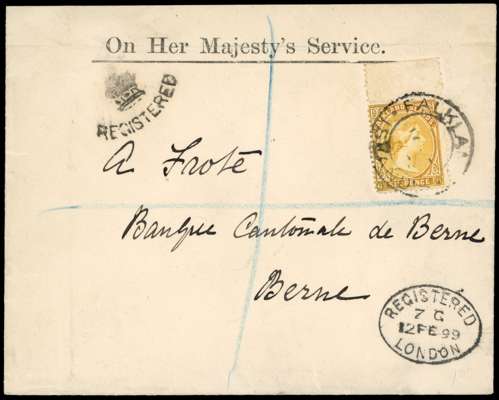 On Her Majesty's Service.
REGISTERED
FALKLA
PENCE
A Froté
Banque Cantonale de Berne
Berne
REGISTERED
7 C
12 FE 99
LONDON